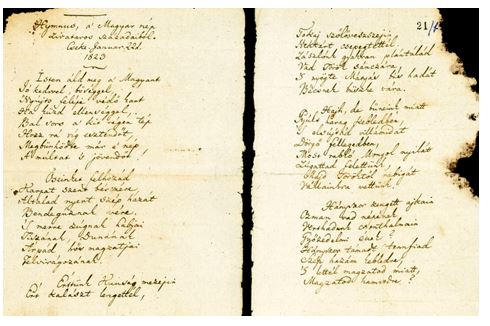 Hymnus, a' Magyar nép
zivataros századaiból.
Cseke Januar. 22d.
1823
Isten áldd meg a' Magyart
Jó kedvvel, bőséggel,
Nyújts feléje védő kart
Ha küzd ellenséggel;
Bal sors a' kit régen tép
Hozz rá víg esztendőt,
Megbűnhődte már e' nép
A' múltat 's jövendőt!
Őseinket felhozád
Kárpát szent bérczére,
Általad nyert szép hazát
Bendegúznak vére.
'S merre zúgnak habjai
Tiszának, Dunának,
Árpád hős magzatjai
Felvirágozának.
Értünk Kunság mezején
Ért kalászt lengettél,
21/
Tokaj szőlővesszején
Nektárt csepegtettél.
Zászlónk gyakran plántálád
Vad Török sánczára,
'S nyögte Mátyás bús hadát
Bécsnek büszke vára.
Hajh, de bűneink miatt
Gyúlt harag kebledben,
'S elsújtád villámidat
Dörgő fellegedben,
Most rabló Mongol nyilát
Zúgattad felettünk,
Majd Töröktől rabigát
Vállainkra vettünk.
Hányszor zengett ajkain
Ozman vad népének
Vert hadunk csonthalmain
Győzedelmi ének!
Hányszor támadt tenfiad
Szép hazám kebledre,
'S lettél magzatod miatt,
Magzatod hamvvedre?